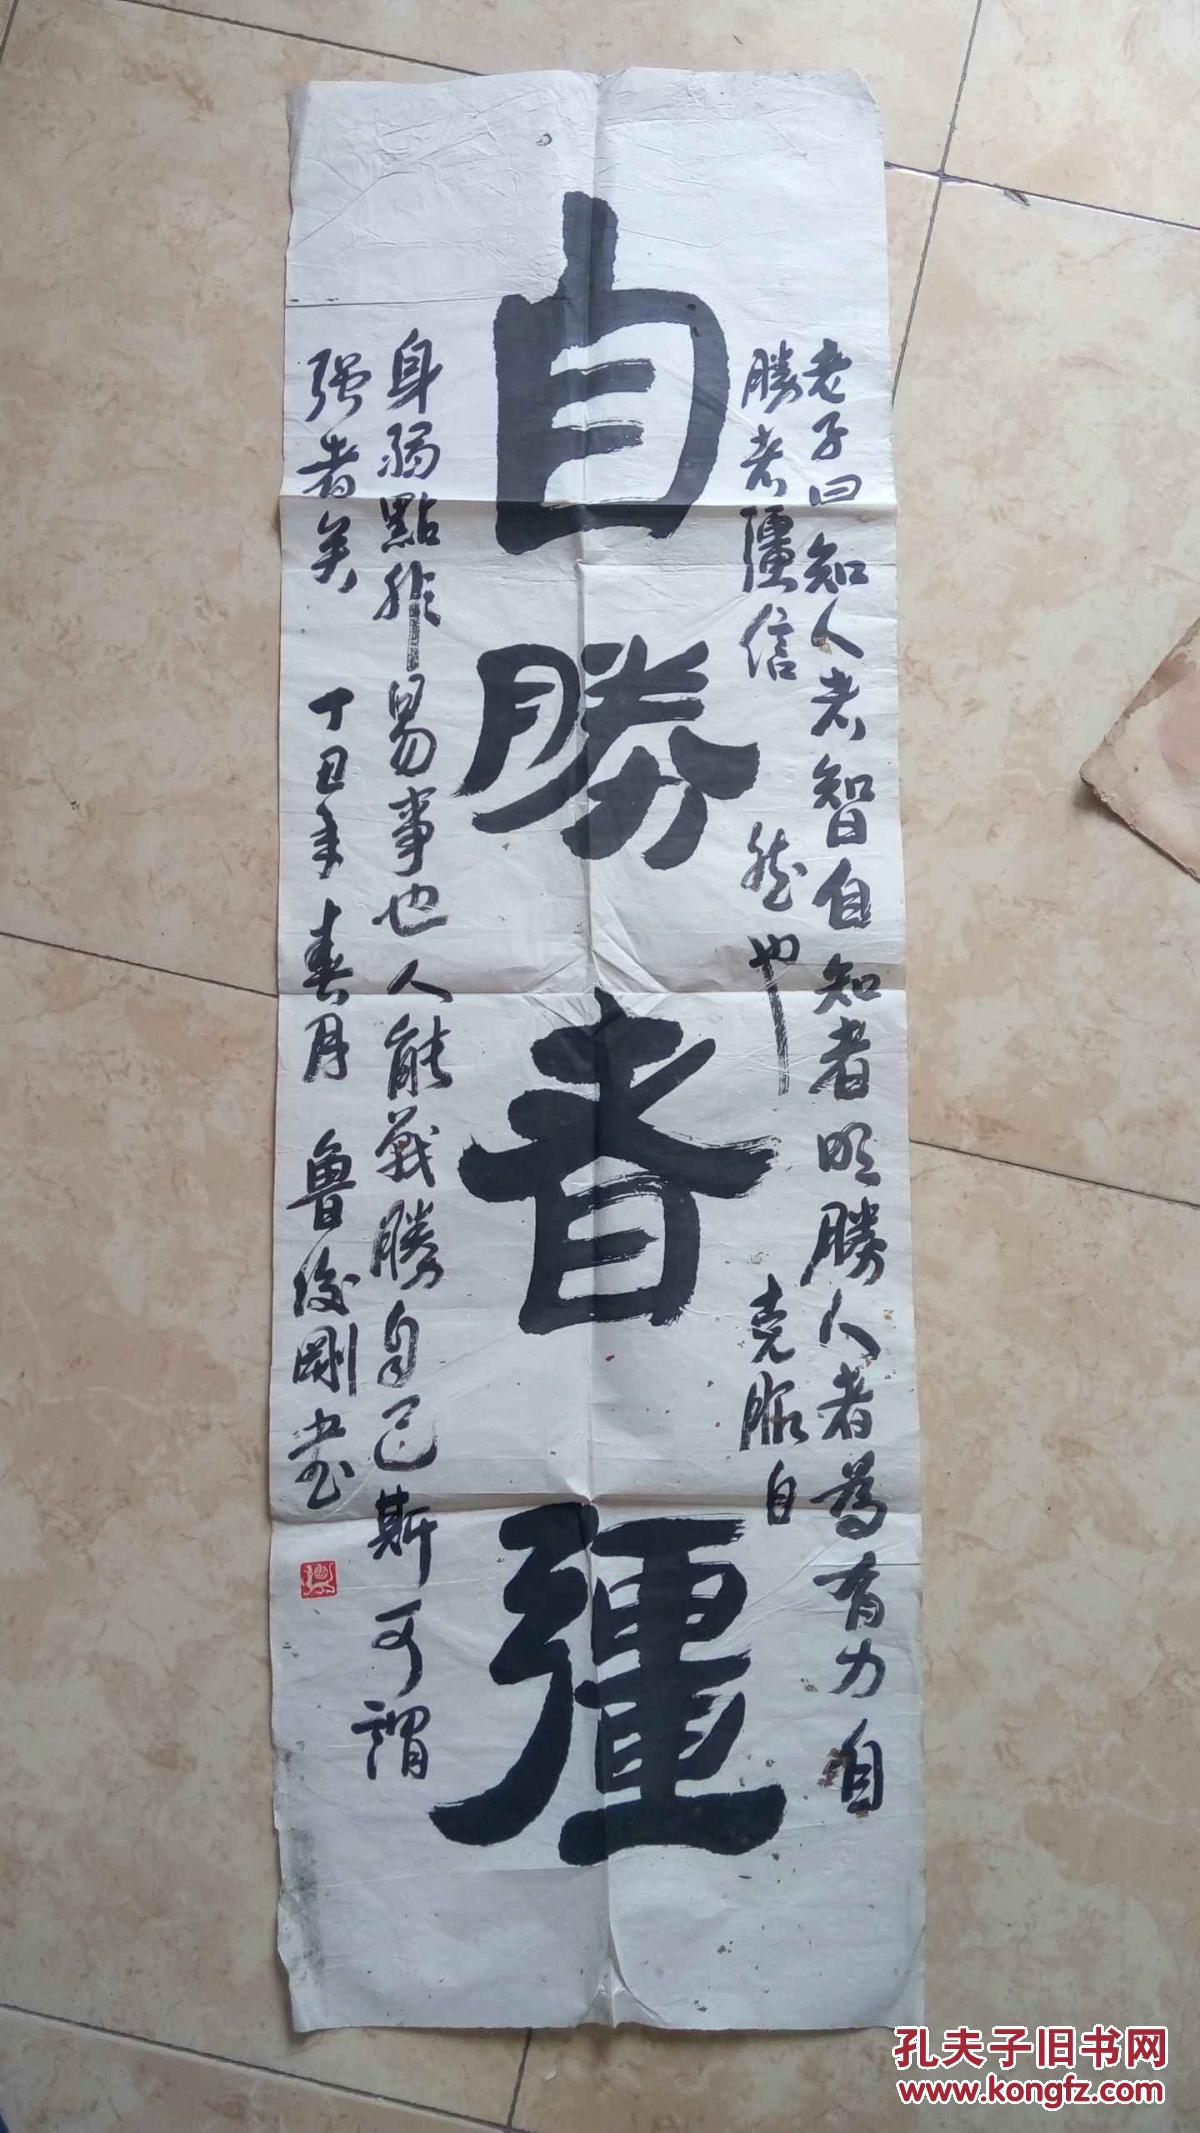 自勝者彊
老子曰知人者智自知者明勝人者為有力自
勝者彊信然也克服自
身弱點非易事也人能戰勝自己斯可謂
强者矣 丁丑年春月 魯俊剛书
孔夫子旧书网
www.kongfz.com